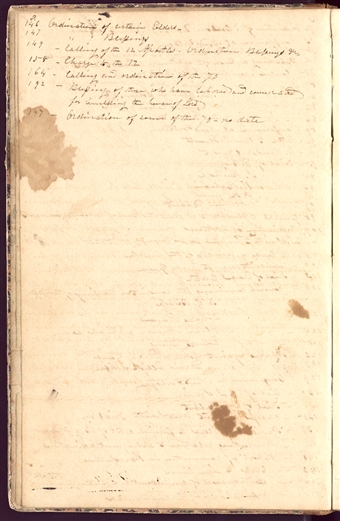 146 Ordination of certain Elders -
147 " Blessings
149 - Calling of the 12 Apostles - Ordination Blessings &c
158 - Charge to the 12
164 - Calling and ordination of the 70
192 - Blessings of those who have labored and
for building the house of Lord
Ordination of some of the 70 - no date